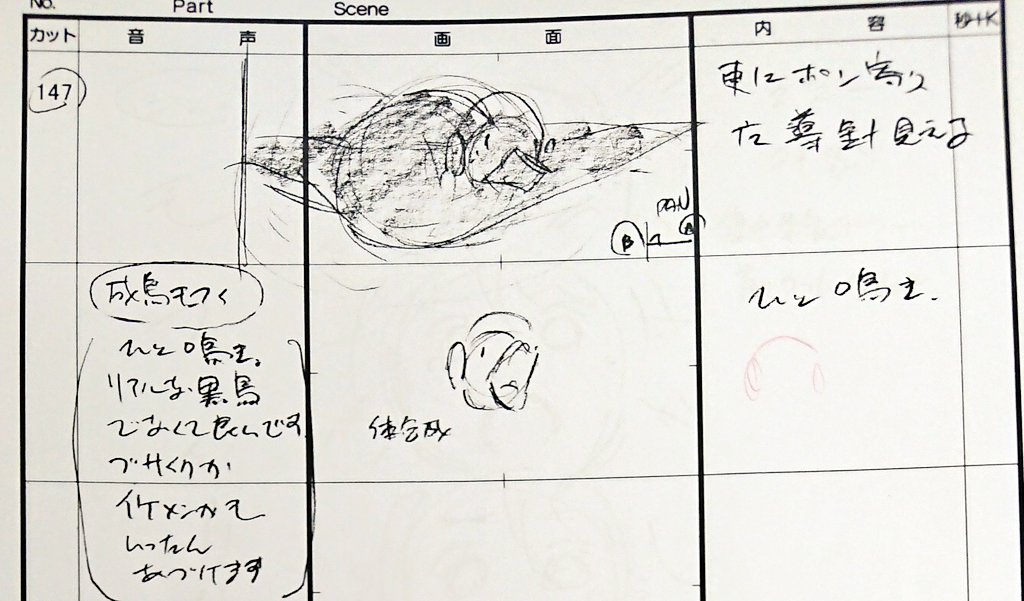 No. Part Scene
カット 音声 画面 内容 秒+K
147
東にポン寄り
た 導 針 見える
PAN
B A
ひと鳴き。
成鳥
ひと鳴き。
リアルな黒鳥
でなくて良いです。
ブサイクか
イケメンかも
いったん
あづけます
体合成